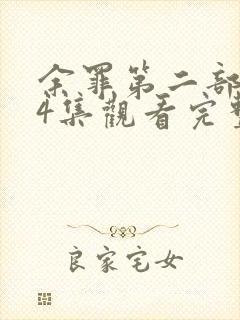 余罪第二部
4集觀看完整
良家宅女